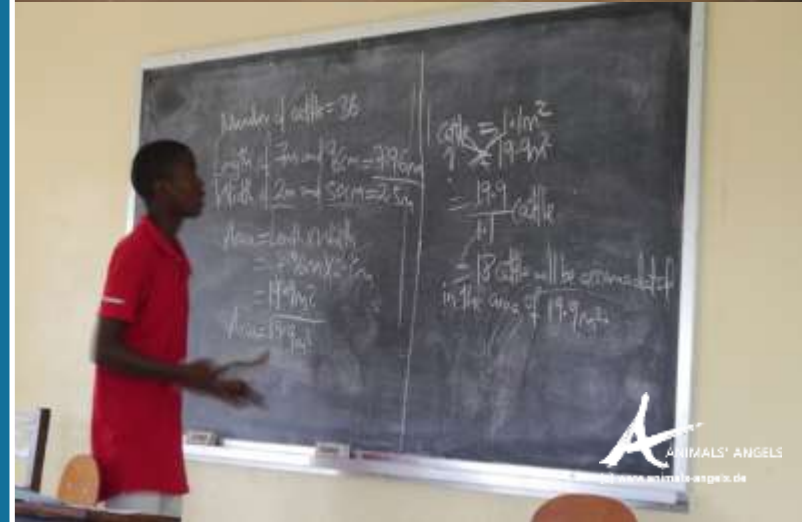 Number of cattle = 36
Length = 7m and 96cm = 7.96m
Width = 2m and 50cm = 2.5m
Area = Length x width
= 7.96m x 2.5m
= 19.9m²
Area = 19.9m²
cattle = 1.1m²
? = 19.9m²
= 19.9
1.1 cattle
= 18 cattle will be accomodated
in the area of 19.9m²
ANIMALS' ANGELS
(c) www.animals-angels.de